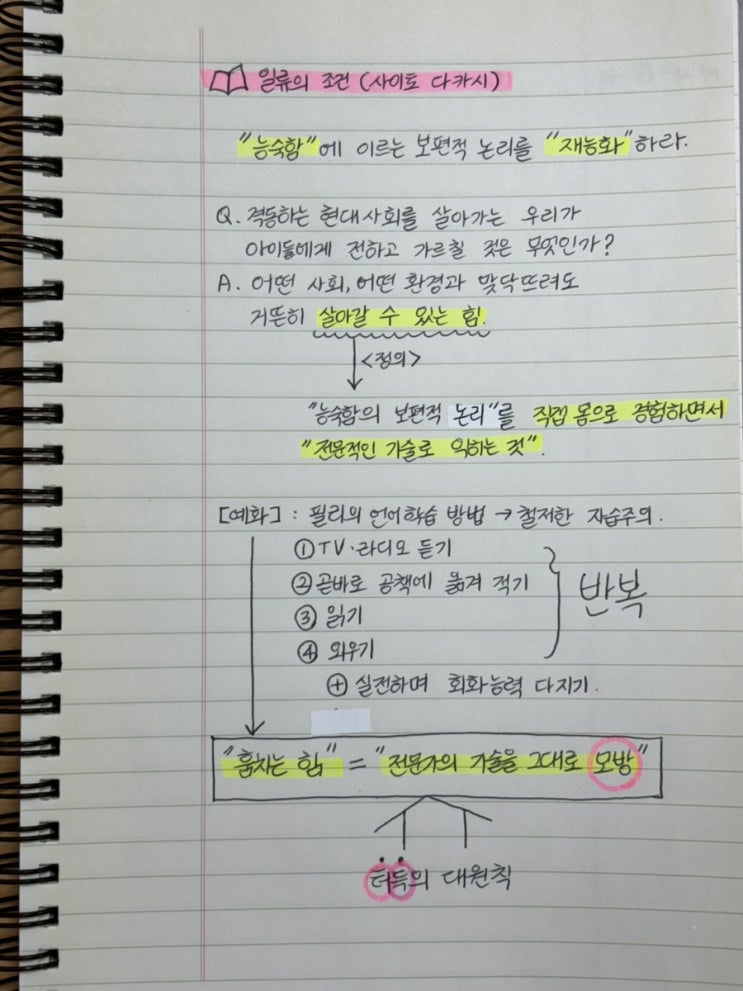 일류의 조건 (사이토 다카시)
"능숙함"에 이르는 보편적 논리를 "재능화"하라.
Q. 격동하는 현대사회를 살아가는 우리가
아이들에게 전하고 가르칠 것은 무엇인가?
A. 어떤 사회, 어떤 환경과 맞닥뜨려도
거뜬히 살아갈 수 있는 힘.
<정의>
"능숙함의 보편적 논리"를 직접 몸으로 경험하면서
"전문적인 기술로 익히는 것".
[예화] : 필리의 언어학습 방법 → 철저한 자습주의.
① TV·라디오 듣기
② 곧바로 공책에 옮겨 적기
③ 읽기
④ 외우기
반복
⊕ 실전하며 회화능력 다지기.
"훔치는 힘" = "전문가의 기술을 그대로 모방"
터득의 대원칙